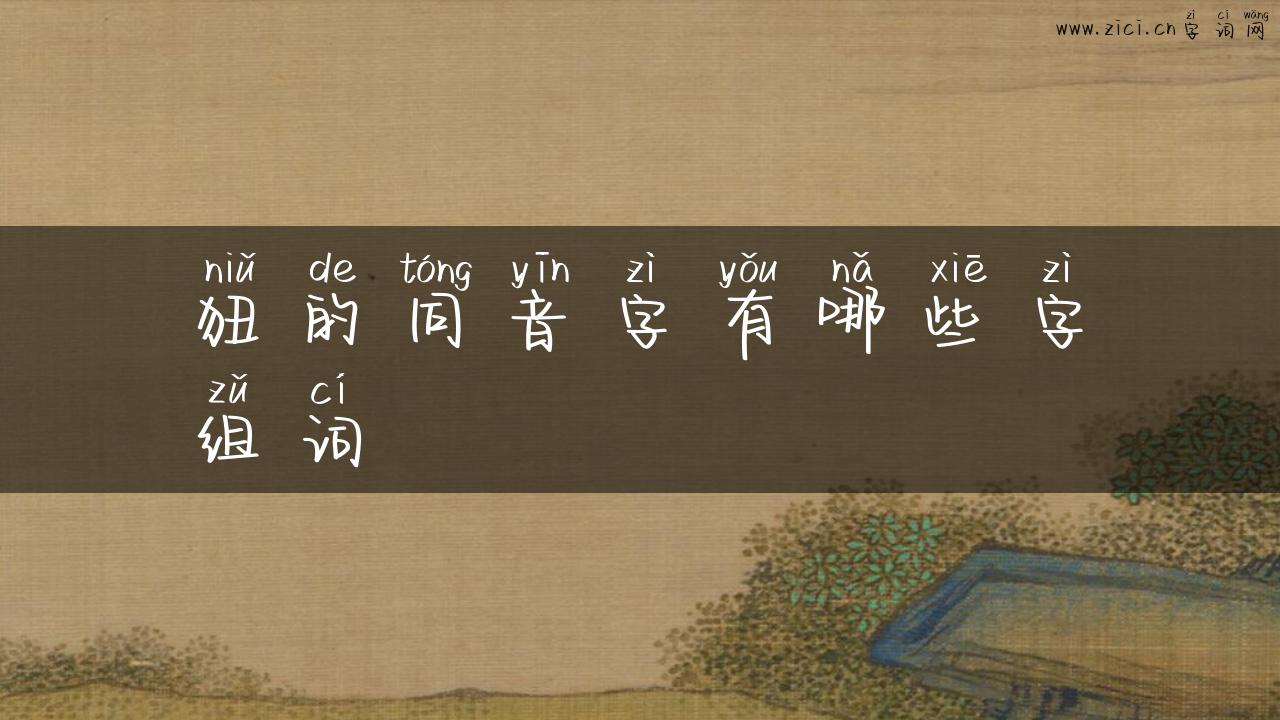 zì cí wǎng
www.zici.cn 字词网
niǔ de tóng yīn zì yǒu nǎ xiē zì
狃的同音字有哪些字
zǔ cí
组词